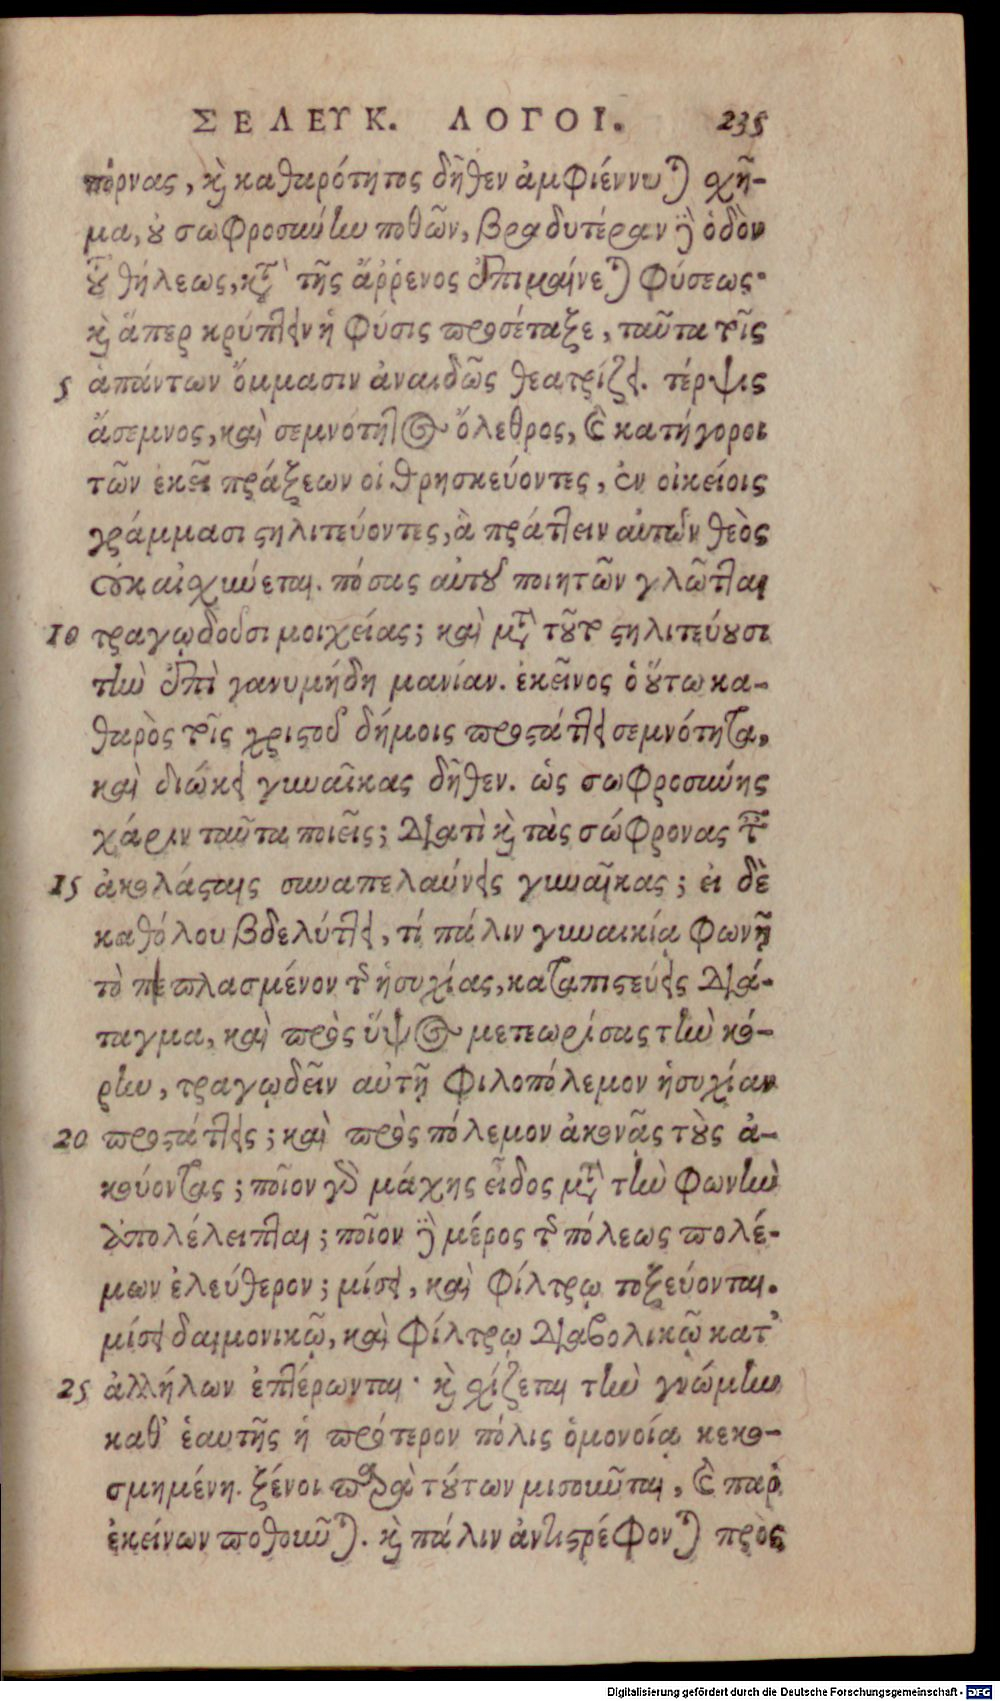 ΣΕΛΕΥΚ. ΛΟΓΟΙ. 235
πόρνας, καὶ καθαρότητος δῆθεν ἀμφιέννυται σχῆ-
μα, οὐ σωφροσύνην ποθῶν, βραδυτέραν δὲ ὁδὸν
τοῦ θήλεως, κατὰ τῆς ἄῤῥενος ἐπιμαίνεται φύσεως·
καὶ ἅπερ κρύπτειν ἡ φύσις προσέταξε, ταῦτα τοῖς
5 ἁπάντων ὄμμασιν ἀναιδῶς θεατρίζει. τέρψις
ἄσεμνος, καὶ σεμνότητος ὄλεθρος, καὶ κατήγοροι
τῶν ἐκεῖ πράξεων οἱ θρησκεύοντες, ἐν οἰκείοις
γράμμασι στηλιτεύοντες, ἃ πράττειν αὐτῶν θεὸς
οὐκ αἰσχύνεται. πόσας αὐτοῦ ποιητῶν γλῶτται
10 τραγῳδοῦσι μοιχείας; καὶ μετὰ τοῦτο στηλιτεύουσι
τὴν ἐπὶ γανυμήδη μανίαν. ἐκεῖνος ὁ οὕτω κα-
θαρὸς τοῖς χριστοῦ δήμοις προστάττει σεμνότητα,
καὶ διώκει γυναῖκας δῆθεν. ὡς σωφροσύνης
χάριν ταῦτα ποιεῖς; διατὶ καὶ τὰς σώφρονας ταῖς
15 ἀκολάσταις συναπελαύνεις γυναῖκας; εἰ δὲ
καθόλου βδελύττει, τί πάλιν γυναικίᾳ φωνῇ
τὸ πεπλασμένον τῆς ἡσυχίας, καταπιστεύεις διά-
ταγμα, καὶ πρὸς ὕψος μετεωρίσας τὴν κό-
ρην, τραγῳδεῖν αὐτῇ φιλοπόλεμον ἡσυχίαν
20 προστάττεις; καὶ πρὸς πόλεμον ἀκονᾷς τοὺς ἀ-
κούοντας; ποῖον γὰρ μάχης εἶδος μετὰ τὴν φωνὴν
ἀπολέλειπται; ποῖον δὲ μέρος τῆς πόλεως πολέ-
μων ἐλεύθερον; μίσει, καὶ φίλτρῳ τοξεύονται.
μίσει δαιμονικῷ, καὶ φίλτρῳ διαβολικῷ κατ'
25 ἀλλήλων ἐπτέρωνται· καὶ σχίζεται τὴν γνώμην
καθ' ἑαυτῆς ἡ πρότερον πόλις ὁμονοίᾳ κεκο-
σμημένη. ξένοι παρὰ τούτων μισοῦνται, καὶ παρ'
ἐκείνων ποθοῦνται. καὶ πάλιν ἀντιστρέφονται πρὸς
Digitalisierung gefördert durch die Deutsche Forschungsgemeinschaft - DFG